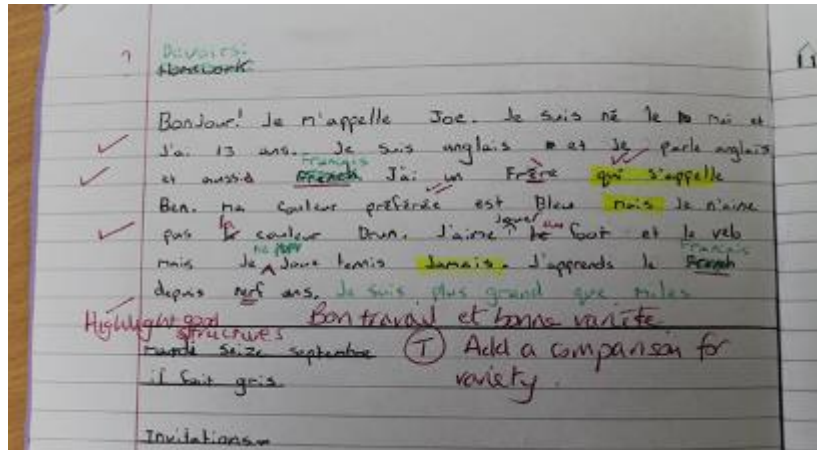 Devoirs:
Homework
Bonjour! Je m'appelle Joe. Je suis né le mai et
J'ai 13 ans. Je suis anglais et je parle anglais
et aussi Français French. J'ai un Frère qui s'appelle
Ben. Ma couleur préférée est Bleu mais Je n'aime
pas la couleur Brun. J'aime jouer foot et le
mais Je ne joue tennis Jamais. J'apprends le Francais French
depuis ans. Je suis plus grand que
Highlight good structures
Bon travail et bonne variété
seize septembre
il fait gris.
T Add a comparison for
variety.
Invitations